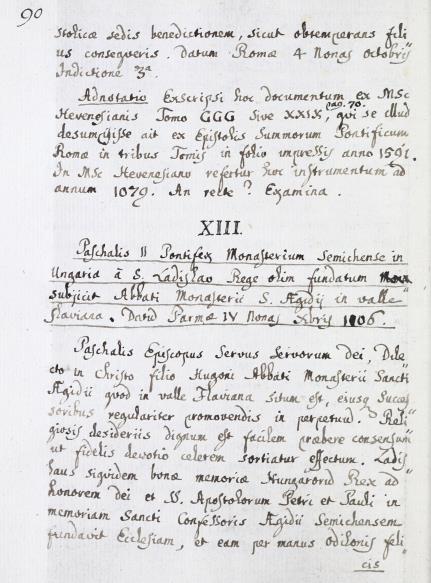 90
stolicæ sedis benedictionem, sicut obtemperans fili
us consequeris. Datum Romæ 4 Nonas Octobris
Indictione 3ª
Adnotatio Exscripsi hoc documentum ex MSc
Hevenesianis Tomo GGG sive XXIX, pag. 70. qui se illud
desumpsisse ait ex Epistolis Summorum Pontificum
Romæ in tribus Tomis in folio impressis anno 1591.
In MSc Hevenesiano refertur hoc instrumentum ad
annum 1079. An recte? Examina.
XIII.
Paschalis II Pontifex Monasterium Semichense in
Ungaria à S. Ladislao Rege olim fundatum
subjicit Abbati Monasterii S. Ægidij in valle
Flaviana. Datū Parmæ IV Nonas Xbris 1106.
Paschalis Episcopus Servus Servorum dei, Dile
cto in Christo filio Hugoni Abbati Monasterii Sancti
Ægidii quod in valle Flaviana situm est, ejusq Succes
soribus regulariter promovendis in perpetuum. Reli
giosis desideriis dignum est facilem præbere consensum
ut fidelis devotio celerem sortiatur effectum. Ladis
laus siquidem bonæ memoriæ Hungarorū Rex ad
honorem dei et S. Apostolorum Petri et Pauli in
memoriam Sancti Confessoris Ægidii Semichensem
fundavit Ecclesiam, et eam per manus Odilonis feli
cis